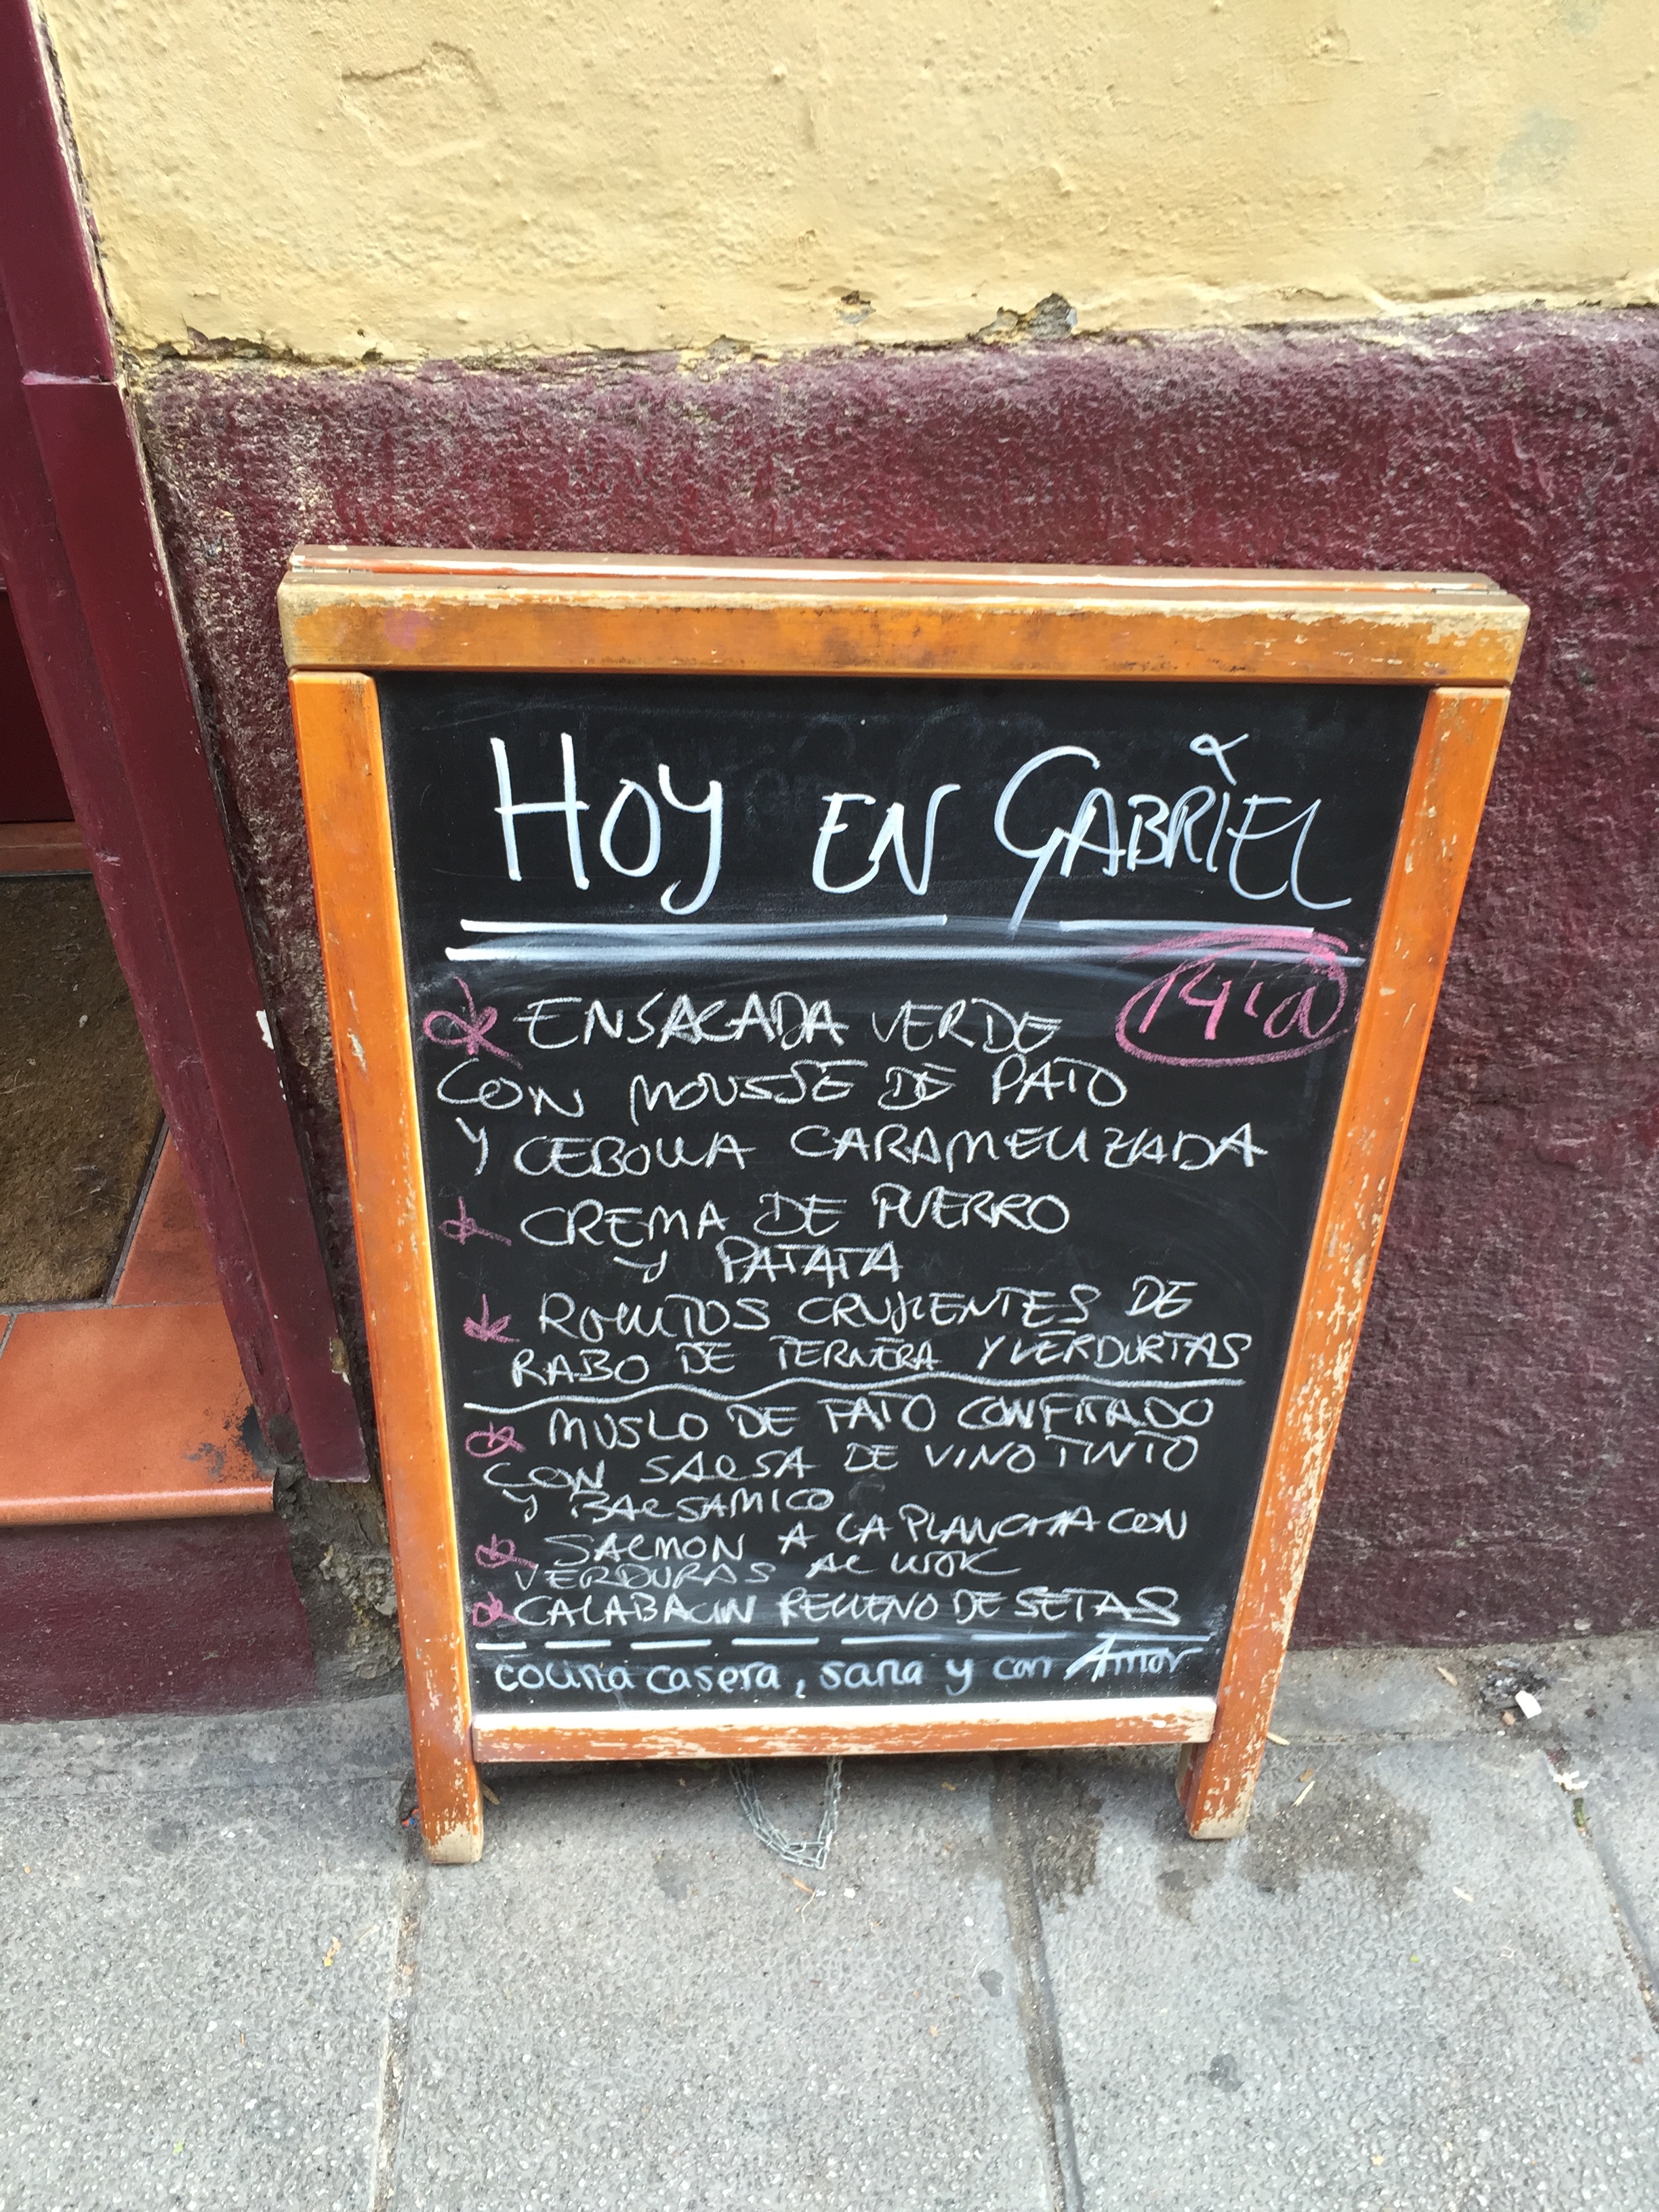 HOY EN GABRIEL
ENSALADA VERDE
CON MOUSSE DE PATO
Y CEBOLLA CARAMELIZADA
CREMA DE PUERRO
Y PATATA
ROLLITOS CRUJIENTES DE
RABO DE TERNERA Y VERDURITAS
MUSLO DE PATO CONFITADO
CON SALSA DE VINO TINTO
Y BALSAMICO
SALMON A LA PLANCHA CON
VERDURAS AL WOK
CALABACIN RELLENO DE SETAS
cocina casera, sana y con Amor